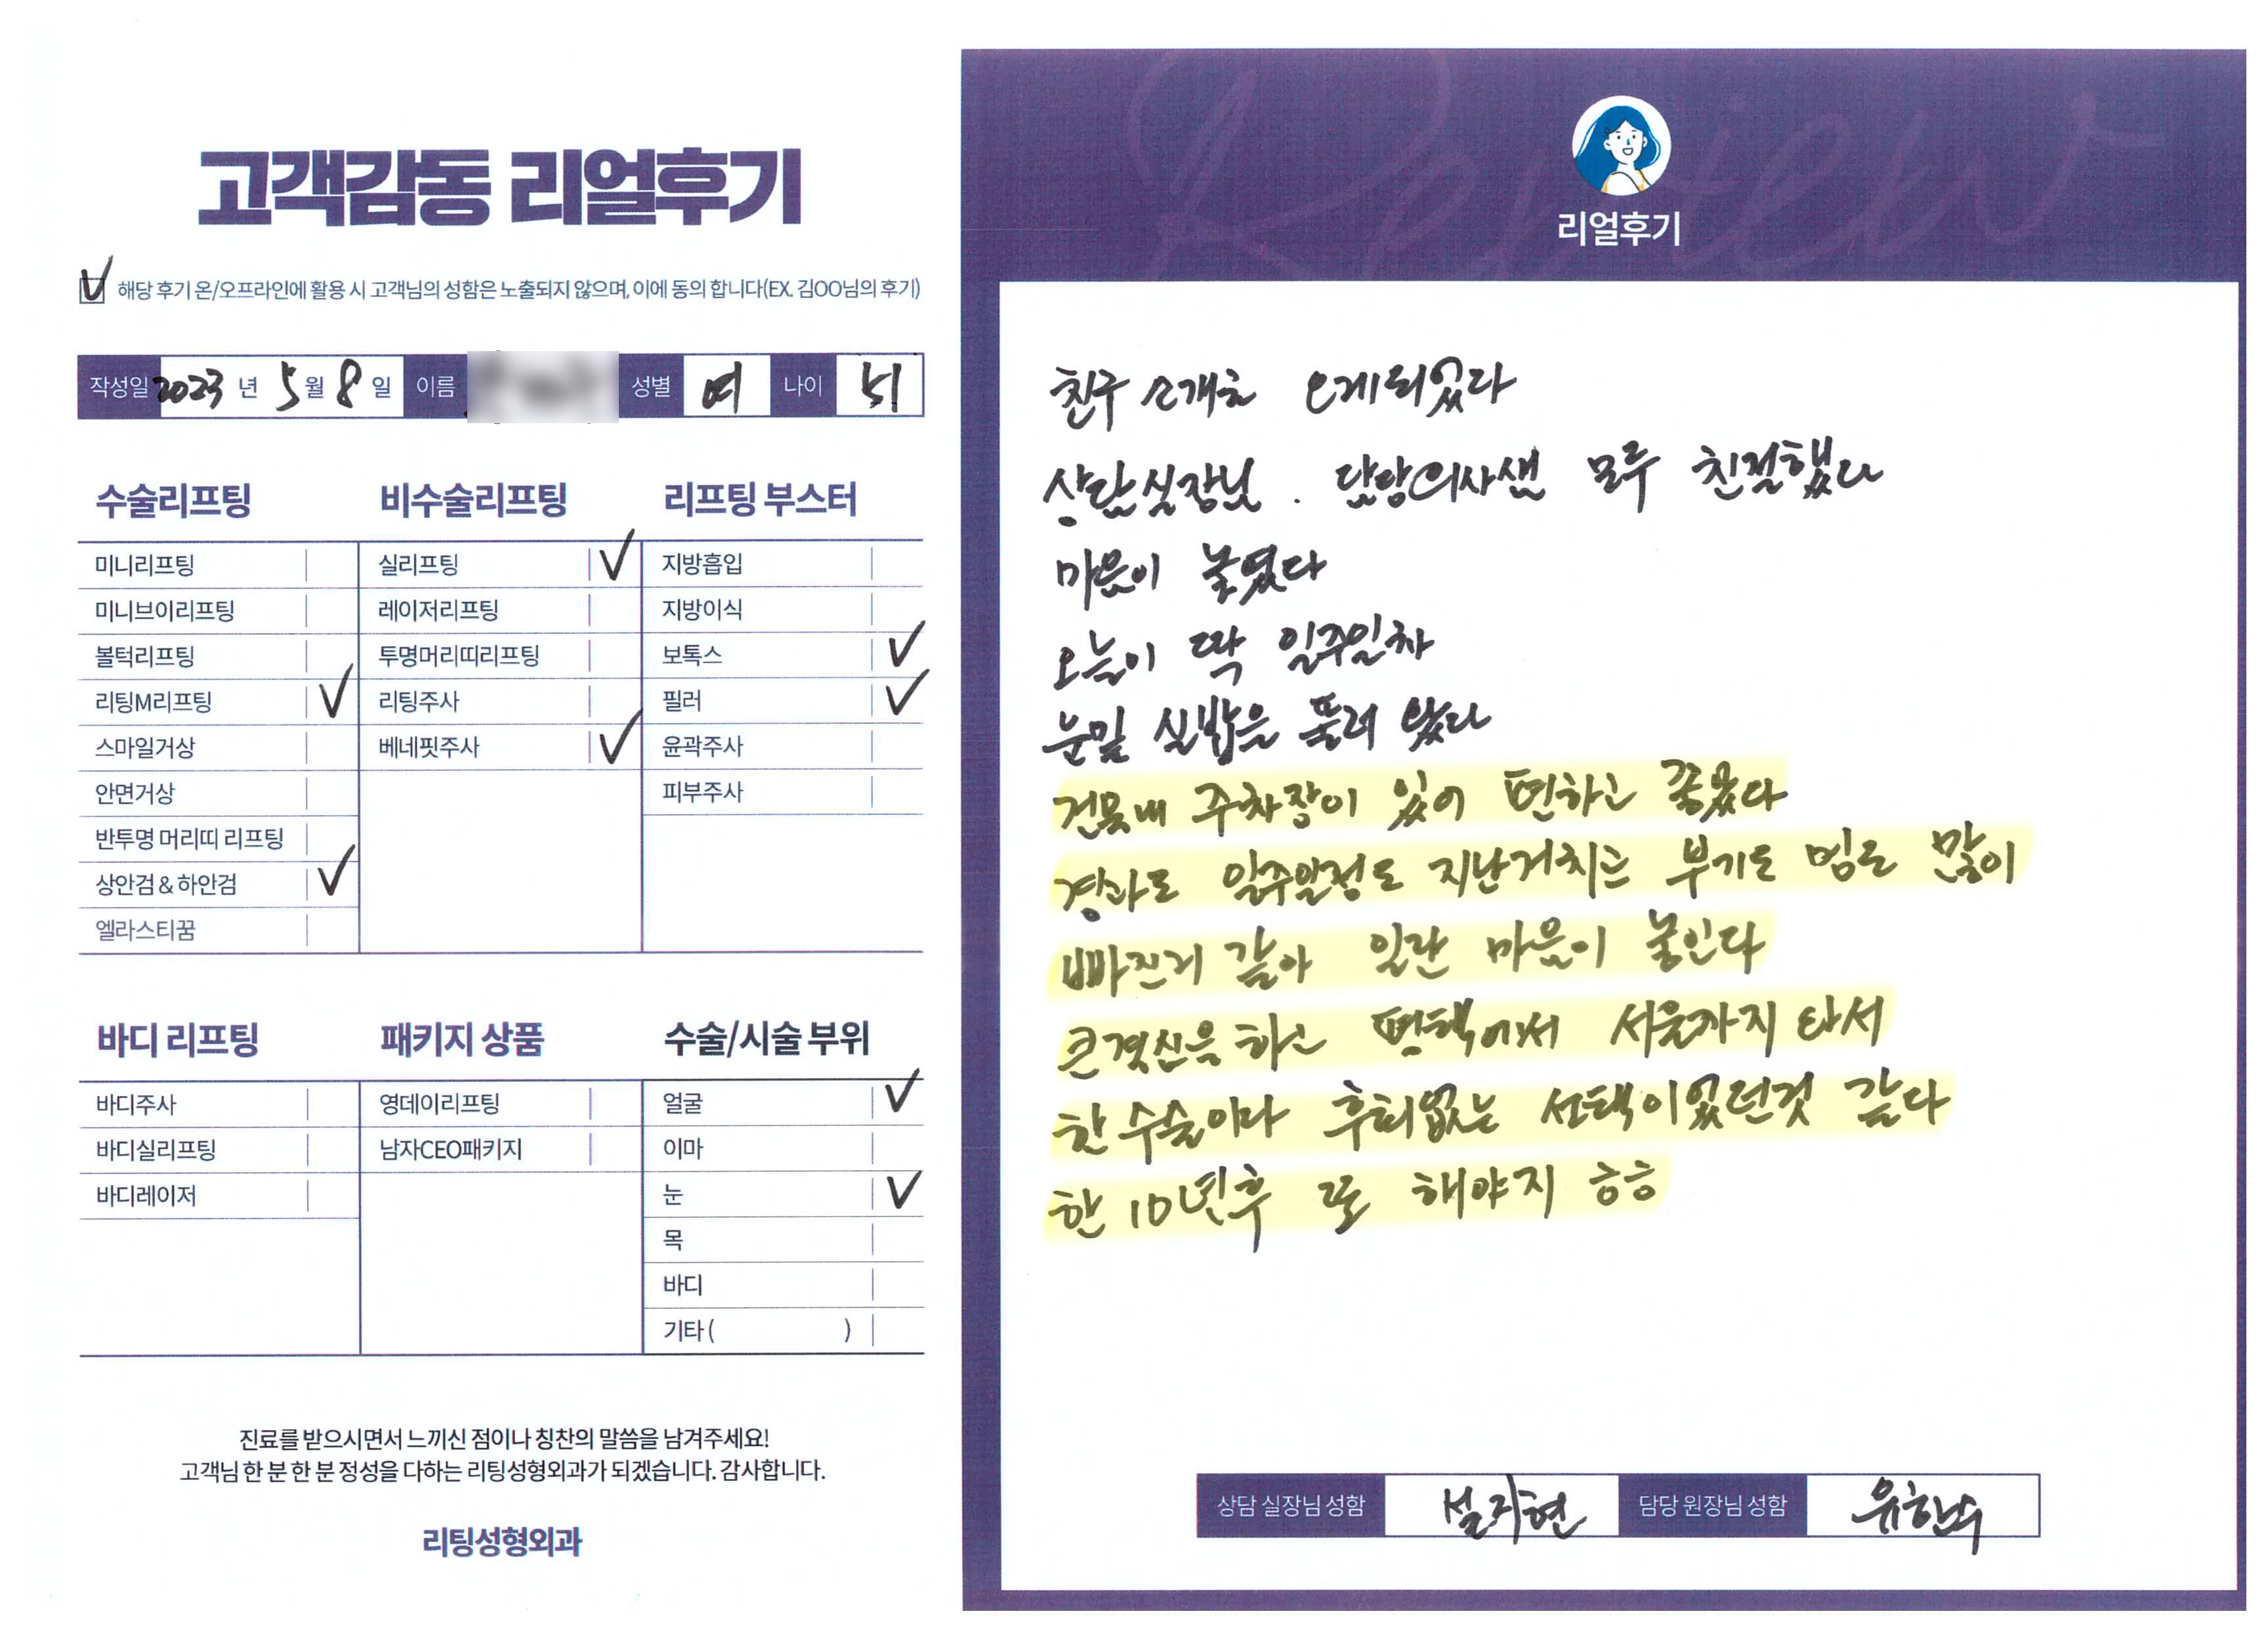 고객감동 리얼후기
해당 후기 온/오프라인에 활용 시 고객님의 성함은 노출되지 않으며, 이에 동의 합니다(EX. 김OO님의 후기)
작성일 2023 년 5 월 8 일 이름 성별 여 나이 51
수술리프팅 비수술리프팅 리프팅 부스터
미니리프팅 실리프팅 ✓ 지방흡입
미니브이리프팅 레이저리프팅 지방이식
볼턱리프팅 투명머리띠리프팅 보톡스 ✓
리팅M리프팅 ✓ 리팅주사 필러 ✓
스마일거상 베네핏주사 ✓ 윤곽주사
안면거상 피부주사
반투명 머리띠 리프팅
상안검 & 하안검 ✓
엘라스티꿈
바디 리프팅 패키지 상품 수술/시술 부위
바디주사 영데이리프팅 얼굴 ✓
바디실리프팅 남자CEO패키지 이마
바디레이저 눈 ✓
목
바디
기타 ( )
진료를 받으시면서 느끼신 점이나 칭찬의 말씀을 남겨주세요!
고객님 한 분 한 분 정성을 다하는 리팅성형외과가 되겠습니다. 감사합니다.
리팅성형외과
Review
리얼후기
친구 소개로 오게되었다
상담실장님 . 담당의사샘 모두 친절했다
마음이 놓였다
오늘이 딱 일주일차
눈밑 실밥을 풀러 왔다
건물내 주차장이 있어 편하고 좋았다
경과도 일주일정도 지난거치곤 부기도 멍도 많이
빠진거 같아 일단 마음이 놓인다
큰결심을 하고 평택에서 서울까지 와서
한 수술이라 후회없는 선택이었던것 같다
한 10년후 또 해야지 ㅎㅎ
상담 실장님 성함 설지현 담당 원장님 성함 유한수